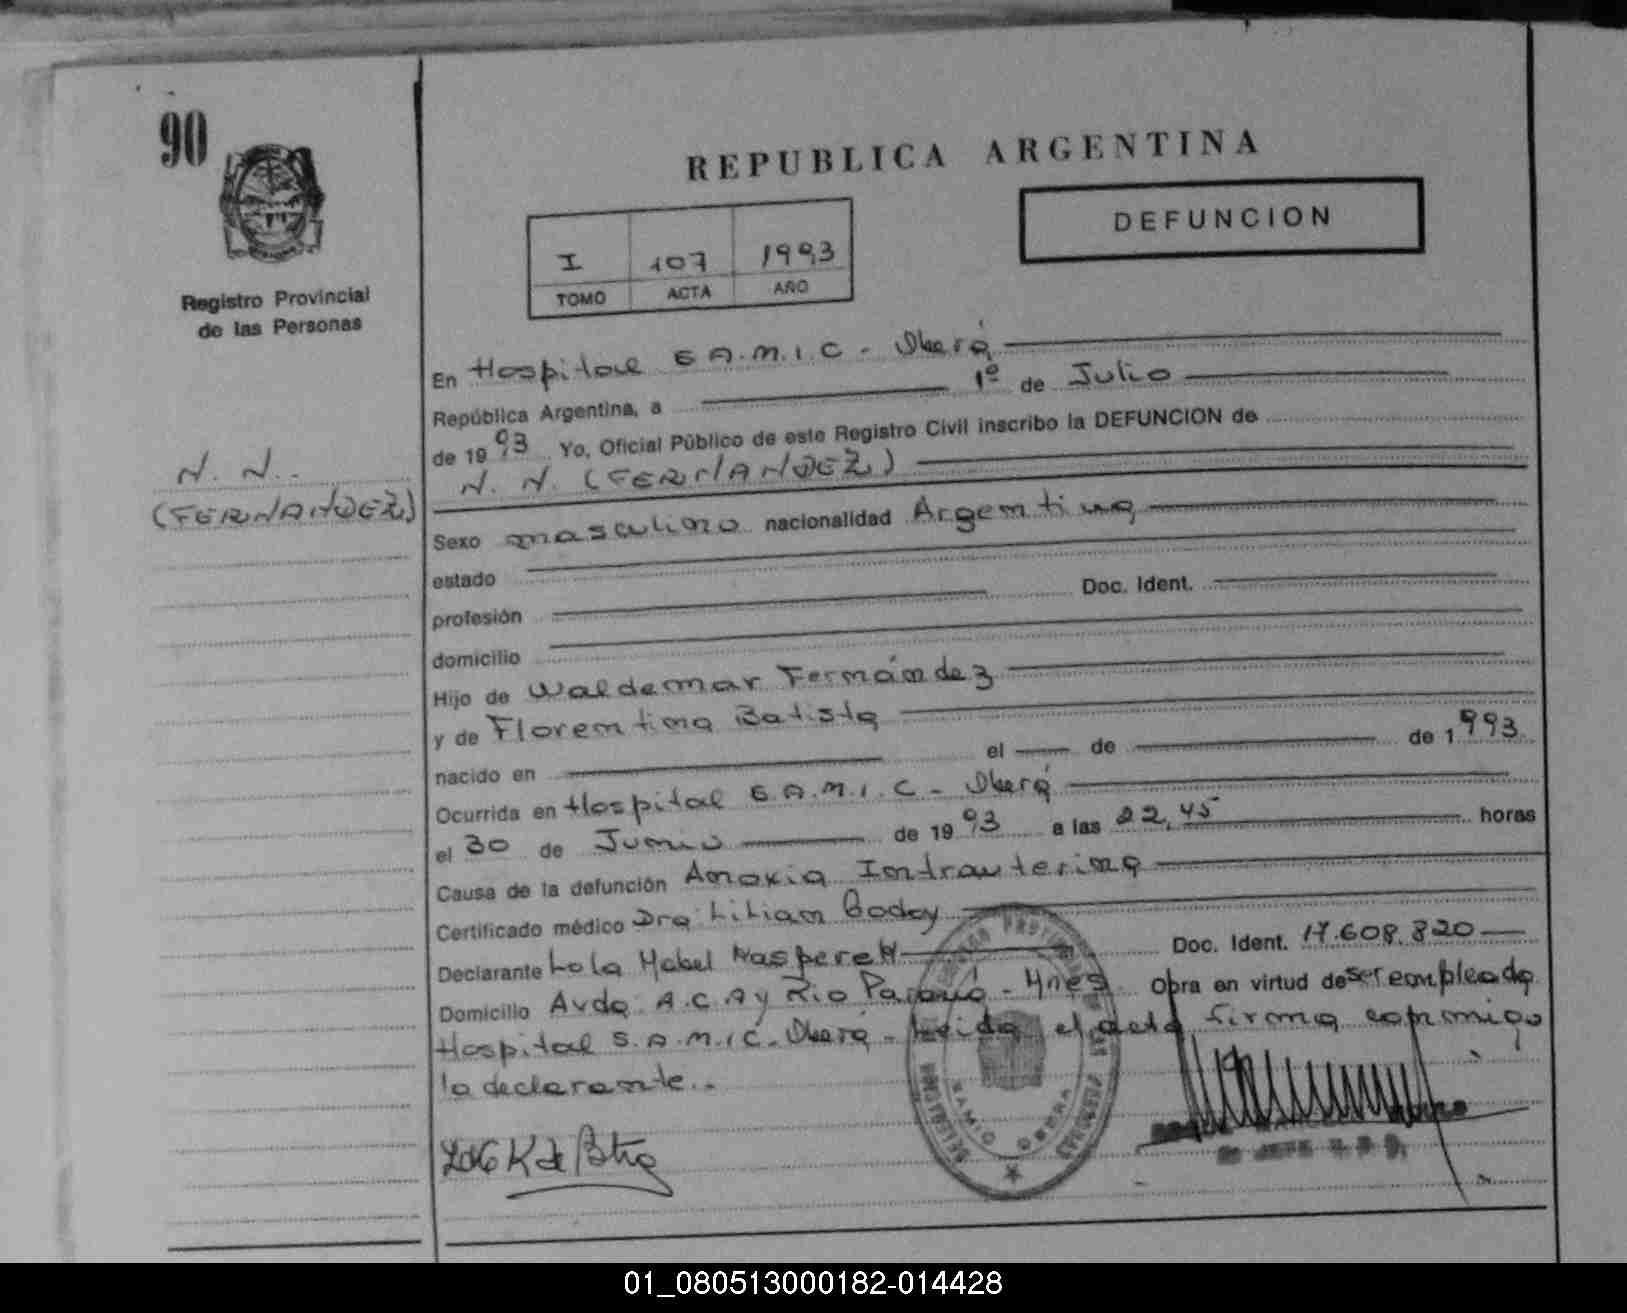 90
REPUBLICA ARGENTINA
DEFUNCION
I 107 1993
TOMO ACTA AÑO
Registro Provincial
de las Personas
N. N.
(FERNANDEZ)
En Hospital S.A.M.I.C - Oberá
República Argentina, a 1º de Julio
de 1993 Yo, Oficial Público de este Registro Civil inscribo la DEFUNCION de
N. N. (FERNANDEZ)
Sexo masculino nacionalidad Argentina
estado
profesión Doc. Ident.
domicilio
Hijo de Waldemar Fernández
y de Florentina Batista
nacido en el de de 1993
Ocurrida en Hospital S.A.M.I.C - Oberá
el 30 de Junio de 1993 a las 22,45 horas
Causa de la defunción Anoxia Intrauterina
Certificado médico Dra. Lilian Godoy
Declarante Lola Mabel Doc. Ident. 17.608.820
Domicilio Avda. A.C.A y Rio Paraná - Mnes. Obra en virtud de ser empleada
Hospital S.A.M.I.C. Oberá - Leida el acta firma conmigo
la declarante..
SAMIC OBERA
01_080513000182-014428